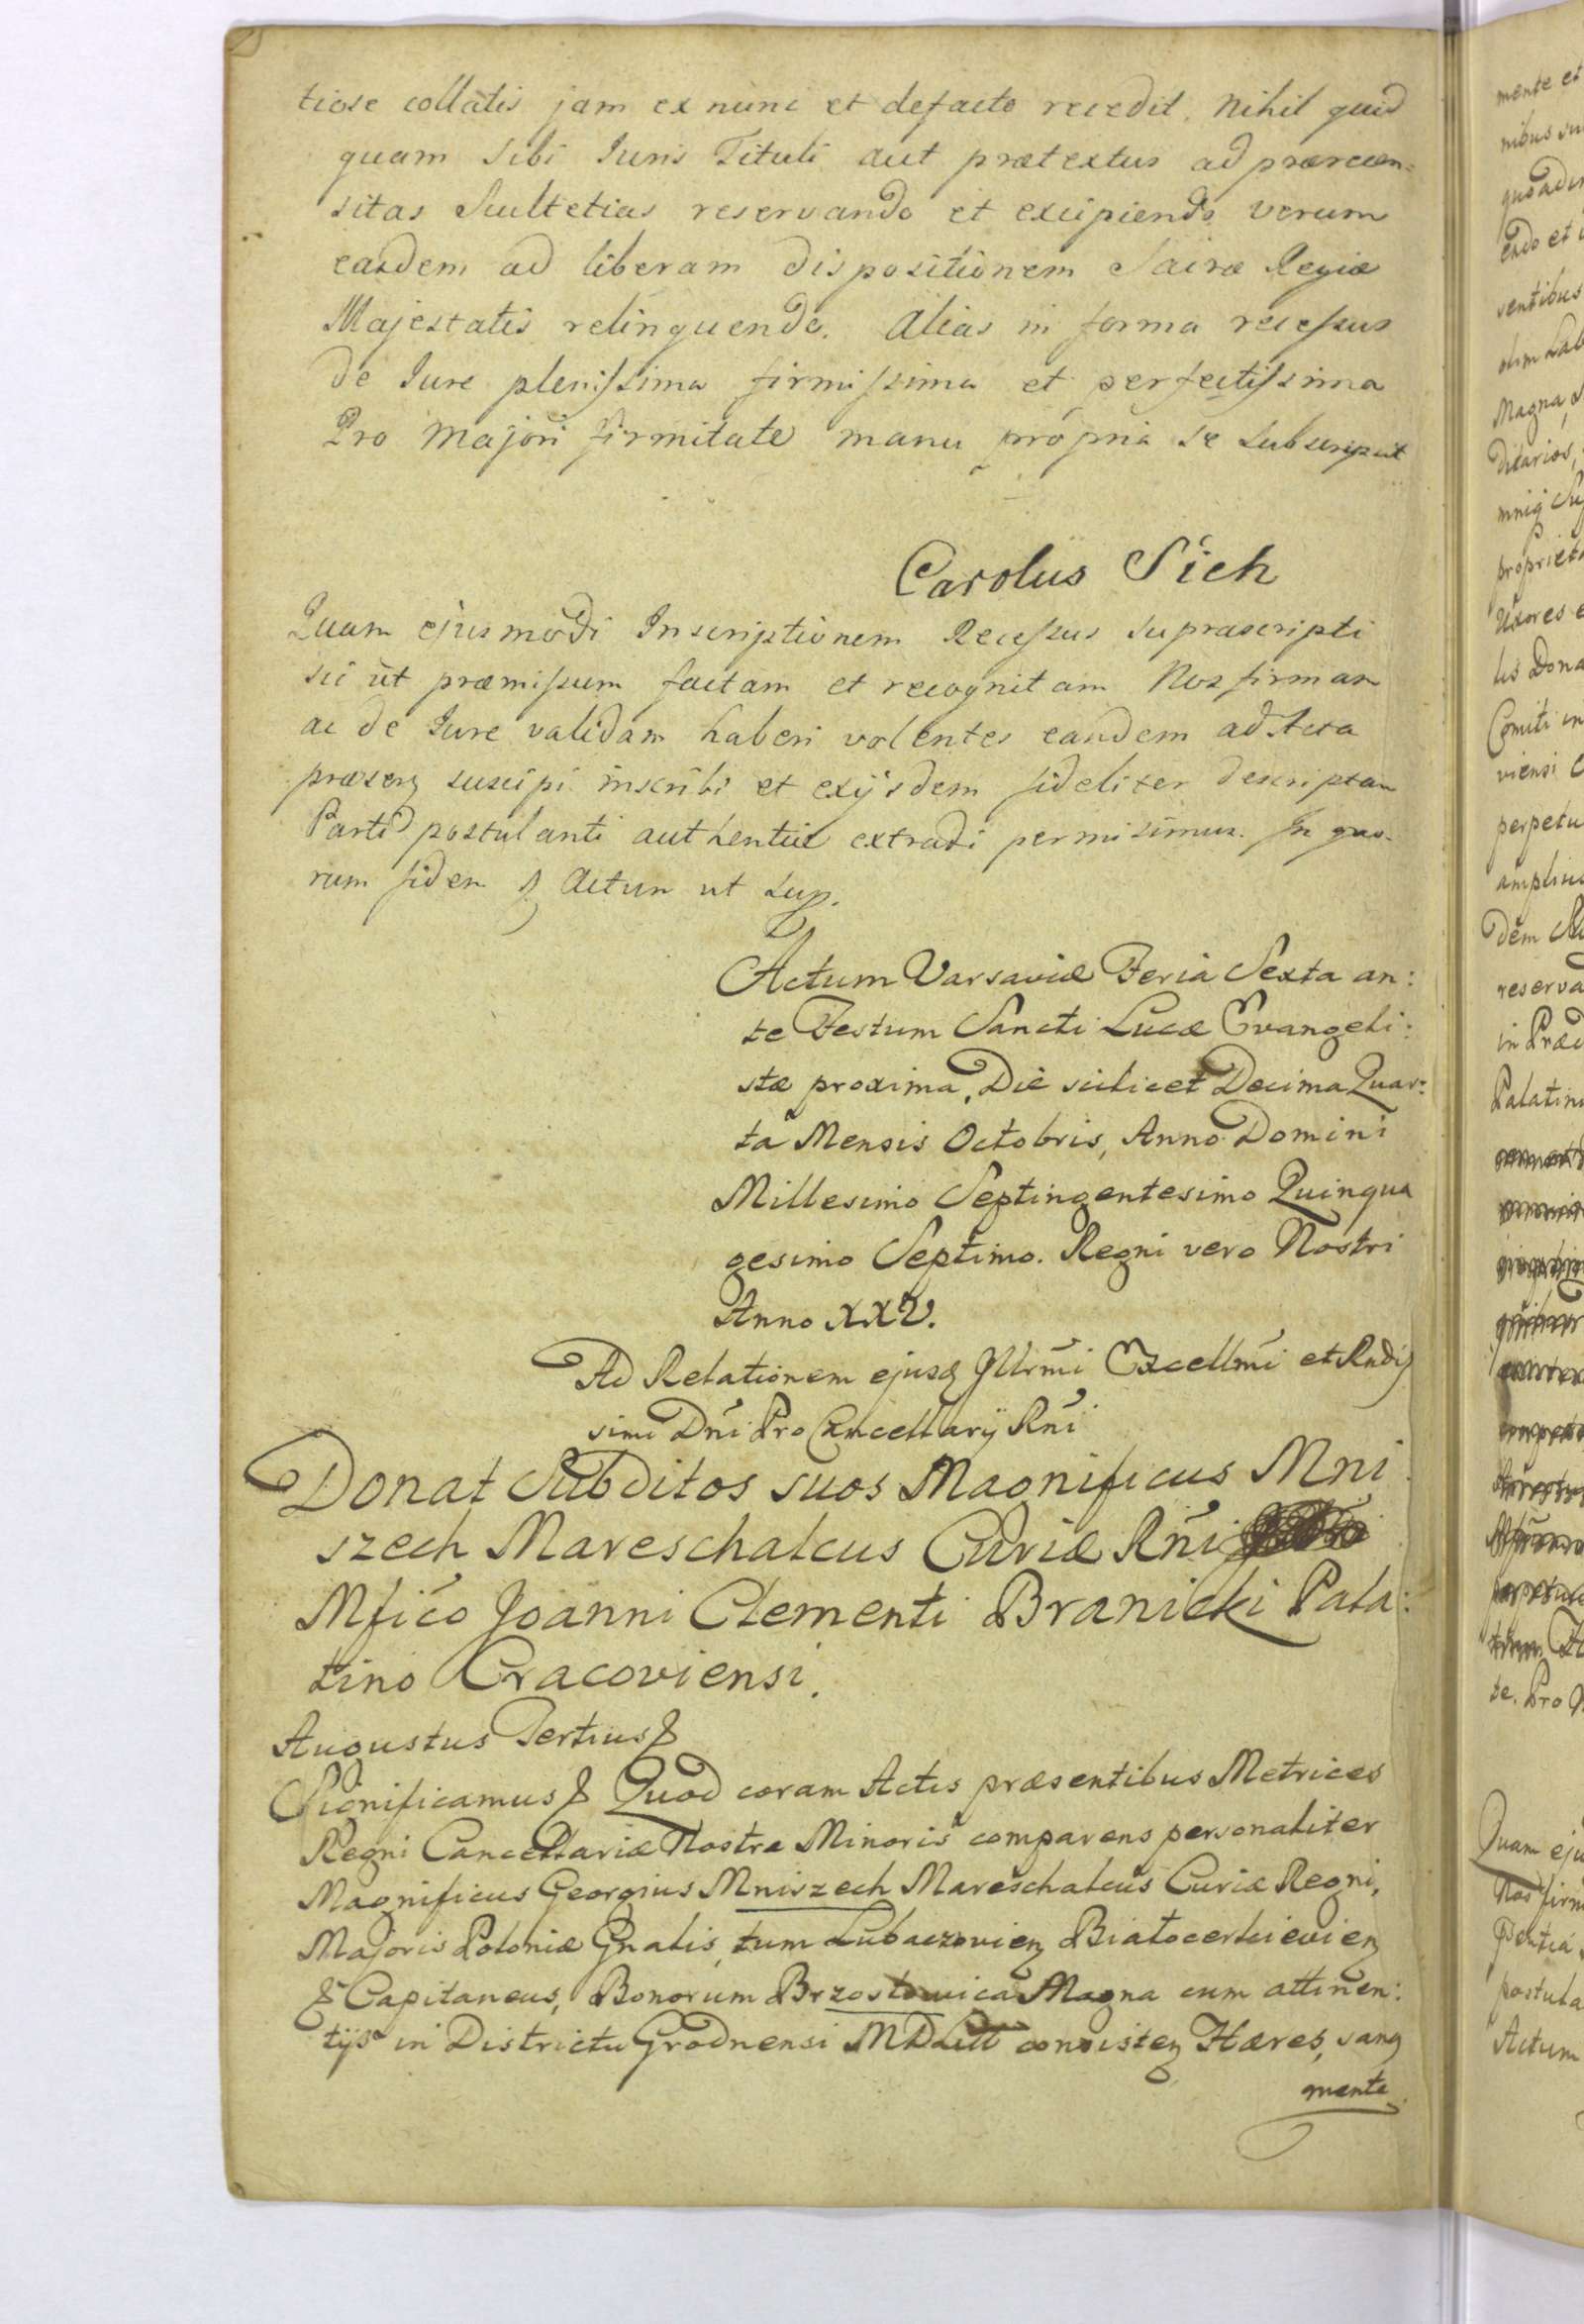 tiose collatis jam ex nunc et defacto recedit. Nihil quid
quam sibi Iuris Tituli aut prætextus ad prærecen=
sitas Scultetias reservando et excipiendo verum
easdem ad liberam dispositionem Sacræ Regiæ
Majestatis relinquendo. Alias in forma recessus
de Iure plenissima firmissima et perfectissima
Pro Majori firmitate manu propria se subscripsit
Carolus Sich
Quam ejusmodi Inscriptionem Recessus suprascripti
sic ut præmissum factam et recognitam Nos firmam
ac de Iure validam haberi volentes eandem ad Acta
præsenz suscipi inscribi et exijsdem fideliter descriptam
Parti postulanti authentice extradi permisimus. In quo-
rum fidem & Actum ut sup.
Actum Varsaviæ Feria Sexta an:
te Festum Sancti Lucæ Evangeli:
stæ proxima, Die scilicet Decima Quar:
ta Mensis Octobris, Anno Domini
Millesimo Septingentesimo Quinqua
gesimo Septimo. Regni vero Nostri
Anno XXV.
Ad Relationem ejusq Illrmi Excellmi et Rndis
simi Dni Pro Cancellarij Rni
Donat Subditos suos Magnificus Mni
szech Mareschalcus Curiæ Rni
Mfico Joanni Clementi Branicki Pala:
tino Cracoviensi.
Augustus Tertius &
Significamus & Quod coram Actis præsentibus Metrices
Regni Cancellariæ Nostra Minoris comparens personaliter
Magnificus Georgius Mniszech Mareschalcus Curiæ Regni,
Majoris Poloniæ Gnalis, tum Lubaczovienz Białocerkievienz
& Capitaneus, Bonorum Brzostowica Magna cum attinen:
tijs in Districtu Grodnensi MDLitt consistenz Hæres, sanq
mente